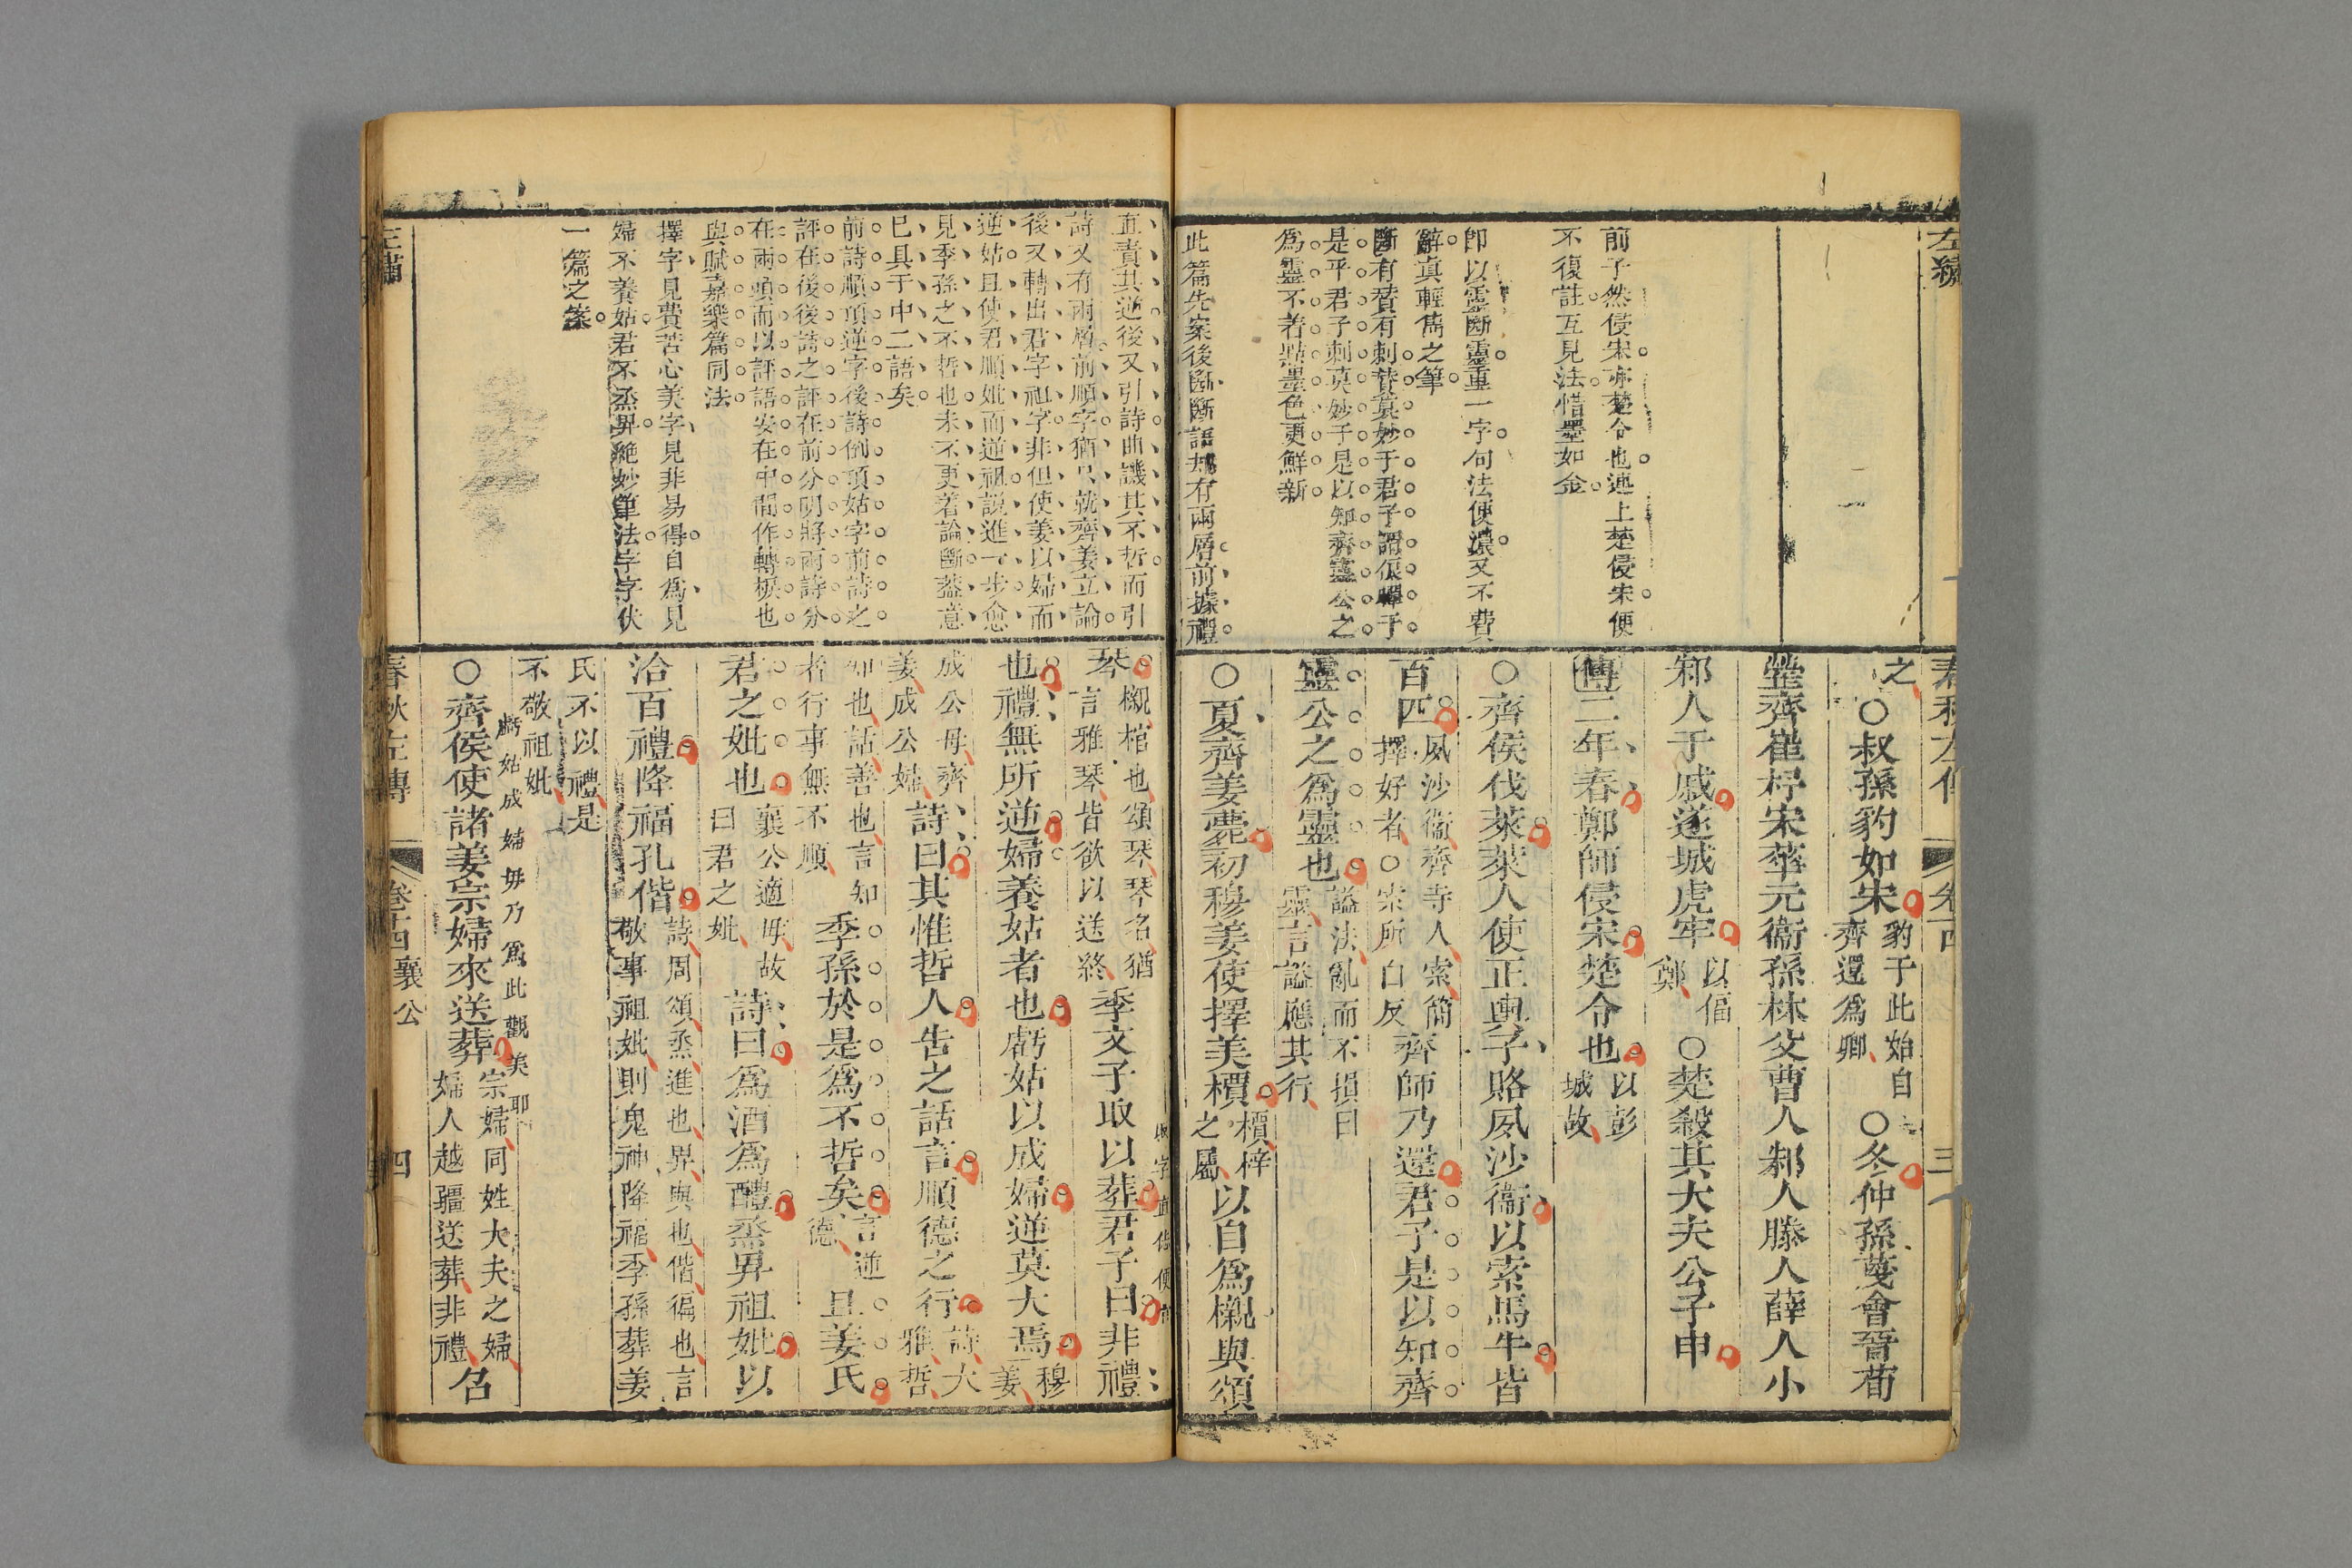 左繡
前子然侵宋亦楚令也連上楚侵宋便
不復註互見法惜墨如金
即以靈斷靈重一字句法便濃又不費
辭真輕雋之筆
斷有贊有刺贊莫妙于君子謂
是乎君子刺莫妙于是以知齊靈公之
爲靈不著點墨色更鮮新
此篇先案後斷斷語却有兩層前據禮
春秋左傳
卷十四
三
之
○叔孫豹如宋
豹于此始自
齊還爲卿
○冬仲孫蔑會晉荀
罃齊崔杼宋華元衞孫林父曹人邾人滕人薛人小
邾人于戚遂城虎牢
以偪
鄭
○楚殺其大夫公子申
傳二年春鄭師侵宋楚令也
以彭
城故
○齊侯伐萊萊人使正輿子賂夙沙衞以索馬牛皆
百匹
夙沙衞齊寺人索簡
擇好者○索所白反
齊師乃還君子是以知齊
靈公之爲靈也
諡法亂而不損曰
靈言諡應其行
○夏齊姜薨初穆姜使擇美檟
檟梓
之屬
以自爲櫬與頌
直責其逆後又引詩曲譏其不哲而引
詩又有兩層前順字猶只就齊姜立論
後又轉出君字祖字非但使姜以婦而
逆姑且使君順妣而逆祖說進一步愈
見季孫之不哲也未不更着論斷蓋意
已具于中二語矣
前詩順頂逆字後詩倒頂姑字前詩之
評在後後詩之評在前分明將兩詩分
在兩頭而以評語安在中間作轉棙也
與賦嘉樂篇同法
擇字見費苦心美字見非易得自爲見
婦不養姑君不烝畀絕妙筆法字字伏
一篇之案
琴
櫬棺也頌琴琴名猶
言雅琴皆欲以送終
季文子取以葬君子曰非禮
也禮無所逆婦養姑者也虧姑以成婦逆莫大焉
穆
姜
成公母齊
姜成公婦
詩曰其惟哲人告之話言順德之行
詩大
雅哲
知也話善也言知
者行事無不順
季孫於是爲不哲矣
言逆
德
且姜氏
君之妣也
襄公適母故
曰君之妣
詩曰爲酒爲醴烝畀祖妣以
洽百禮降福孔偕
詩周頌烝進也畀與也偕徧也言
敬事祖妣則鬼神降福季孫葬姜
氏不以禮是
不敬祖妣
虧姑成婦毋乃爲此觀美耶
○齊侯使諸姜宗婦來送葬
宗婦同姓大夫之婦
婦人越疆送葬非禮
召
春秋左傳
卷十四襄公
四